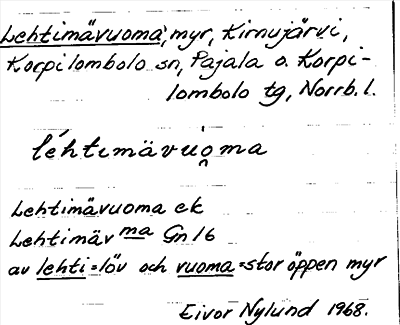 Lehtimävuoma, myr, Kirnujärvi,
Korpilombolo sn, Pajala o. Korpi-
lombolo tg, Norrb. l.
léhtimävuo̯ma
Lehtimävuoma ek
Lehtimäv ma Gn 16
av lehti=löv och vuoma=stor öppen myr
Eivor Nylund 1968.